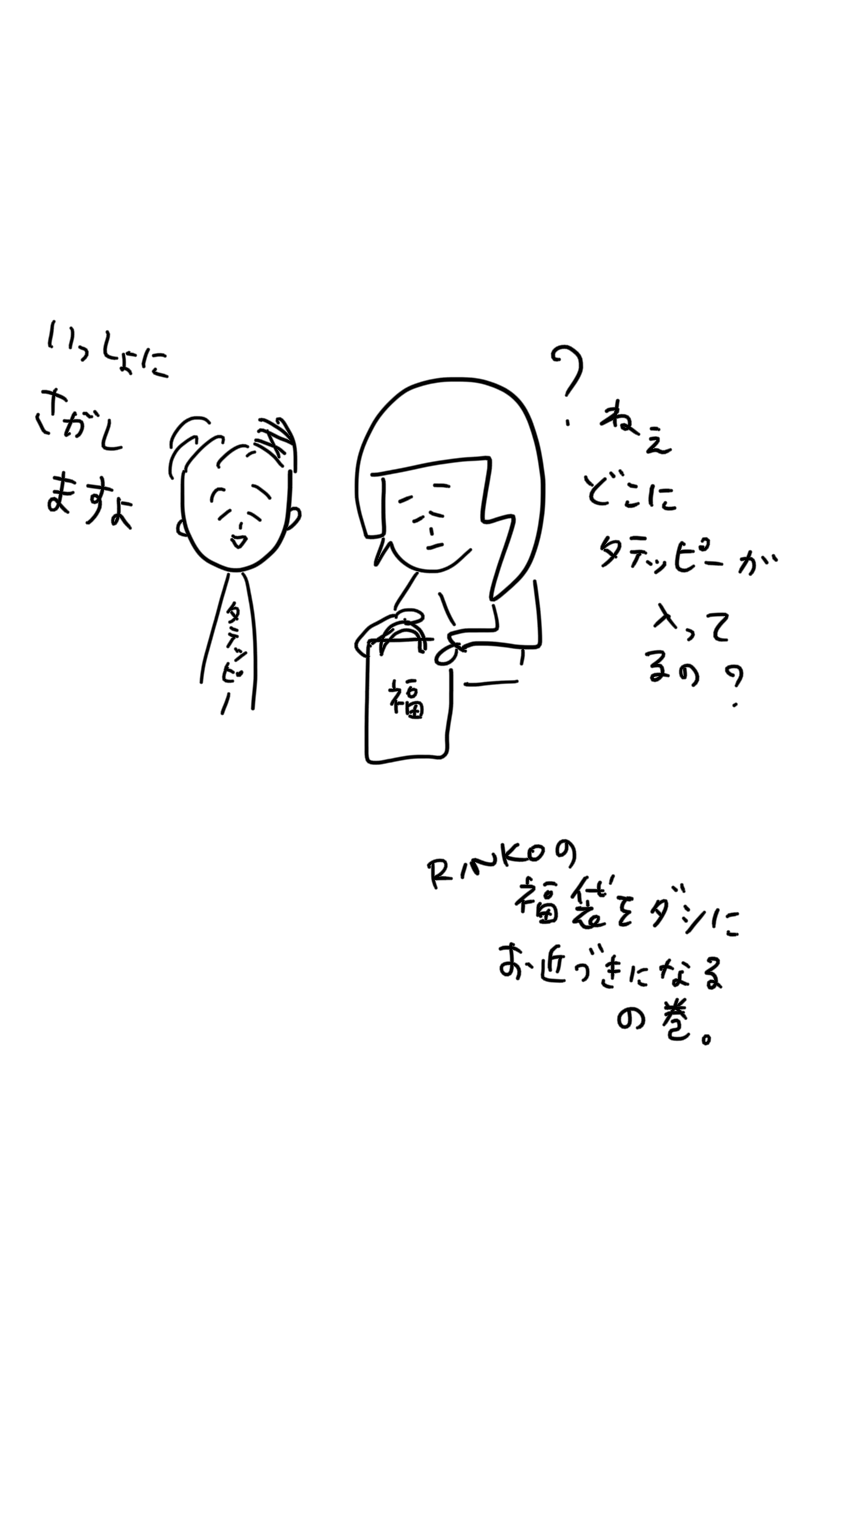 いっしょに
さがし
ますよ
?
ねぇ
どこに
タテッピーが
入って
るの?
タテッピー
福
RINKOの
福袋をダシに
お近づきになる
の巻。